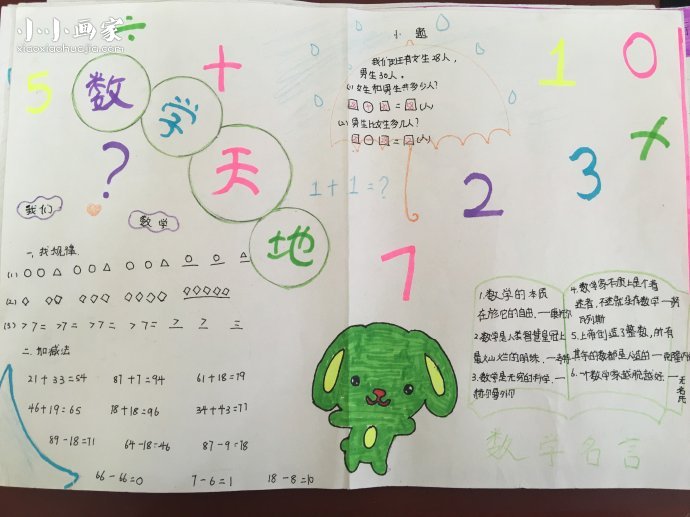 小小画家
xiaoxiaohuajia.com
÷
+
5
数学天地
?
我们
数学
1+1=?
小题
我们班有女生28人,
男生30人。
(1)女生和男生共多少人?
(2)男生比女生多几人?
1 0
2 3 ×
7
一、找规律
(1) ○○△ ○○△ ○○△ ○ ○ △
(2)
(3) >7= >7= >7= > 7 =
二、加减法
21+33=54 87+7=94 61+18=79
46+19=65 78+18=96 34+43=77
89-18=71 64-18=46 87-9=78
66-66=0 7-6=1 18-8=10
1.数学的本质
在於它的自由.
2.数学是人类智慧皇冠上
最灿烂的明珠.
3.数学是无穷的科学.
4.数学家本质上是个着
迷者,不迷就没有数学
5.上帝创造了整数,所有
其余的数都是人造的
6.一个数学家越超脱越好.
无名氏
数学名言